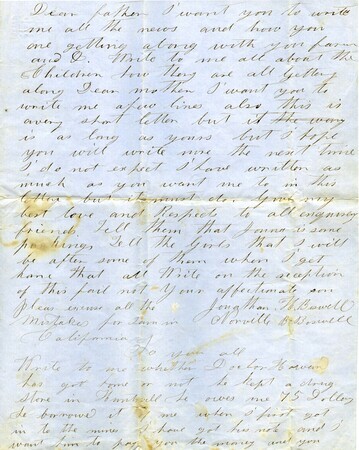 Dear father I want you to write
me all the news and how you
are getting along with you farm
and D. Write to me all about the
Children how they are all getting
along Dear mother I want you to
write me a few lines also this is
a very short letter but it the way
is as long as yours but I hope
you will write more the next time
I do not expect I have written as
much as you want me to in this
letter but it must do. Give my
best love and Respects to all enquiring
friends Tell them that I am is some
pumkings Tell the Girls that I will
be after some of them when I get
home that all Write on the reception
of this fail not Your affectionate son
Pleas excuse all the Jonathan
Mistakes for I am in
California
To you all
Write to me whether Doctor
has got home or not he kept a drug
store in he owes me 75 Dollars
he borrowed it of me when I first got
in to the mines I have got his note and I
want him to pay you the money and you